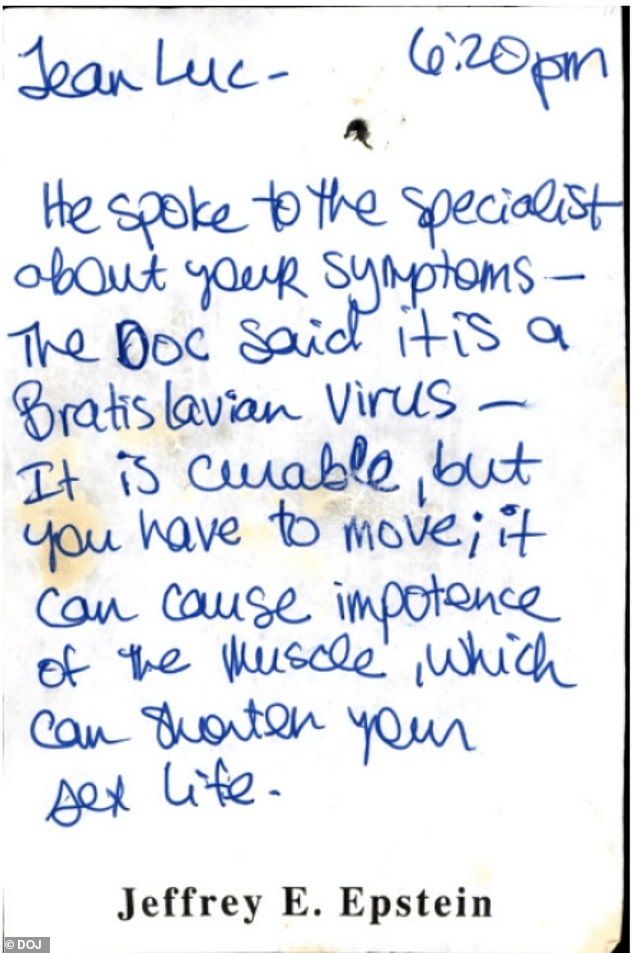 Jean Luc - 6:20pm
He spoke to the specialist
about your symptoms —
The Doc said it is a
Bratislavian virus —
It is curable, but
you have to move; it
can cause impotence
of the muscle, which
can shorten your
sex life.
Jeffrey E. Epstein
© DOJ